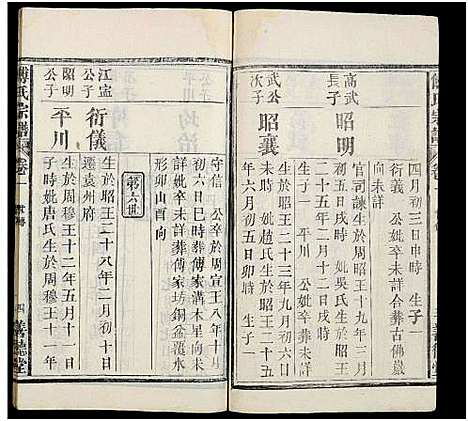 四月初三日申時 生子一
公妣卒未詳合葬古佛巖
向未詳
高武長子 昭明 官司諫生於周昭王十九年二月
初五日戌時 妣吳氏生於昭王
二十五年二月十二日戌時
生子一 平川 公妣卒葬未詳
武公次子 昭襄 生於昭王二十三年九月初六日
時 妣趙氏生於昭王二十五
年六月初五日卯時 生子一
守信 公卒於周宣王八年十月
初六日巳時葬傅家溝木星向
妣卒未詳葬傅家坊銅盆覆水
形卯山酉向
第六世
江寍公子 衍儀 生於昭王二十八年二月初十日
遷袁州府
昭明公子 平川 生於周穆王十二年五月十一日
子時妣唐氏生於周穆王十一年
傅氏宗譜 卷一 四 善德堂